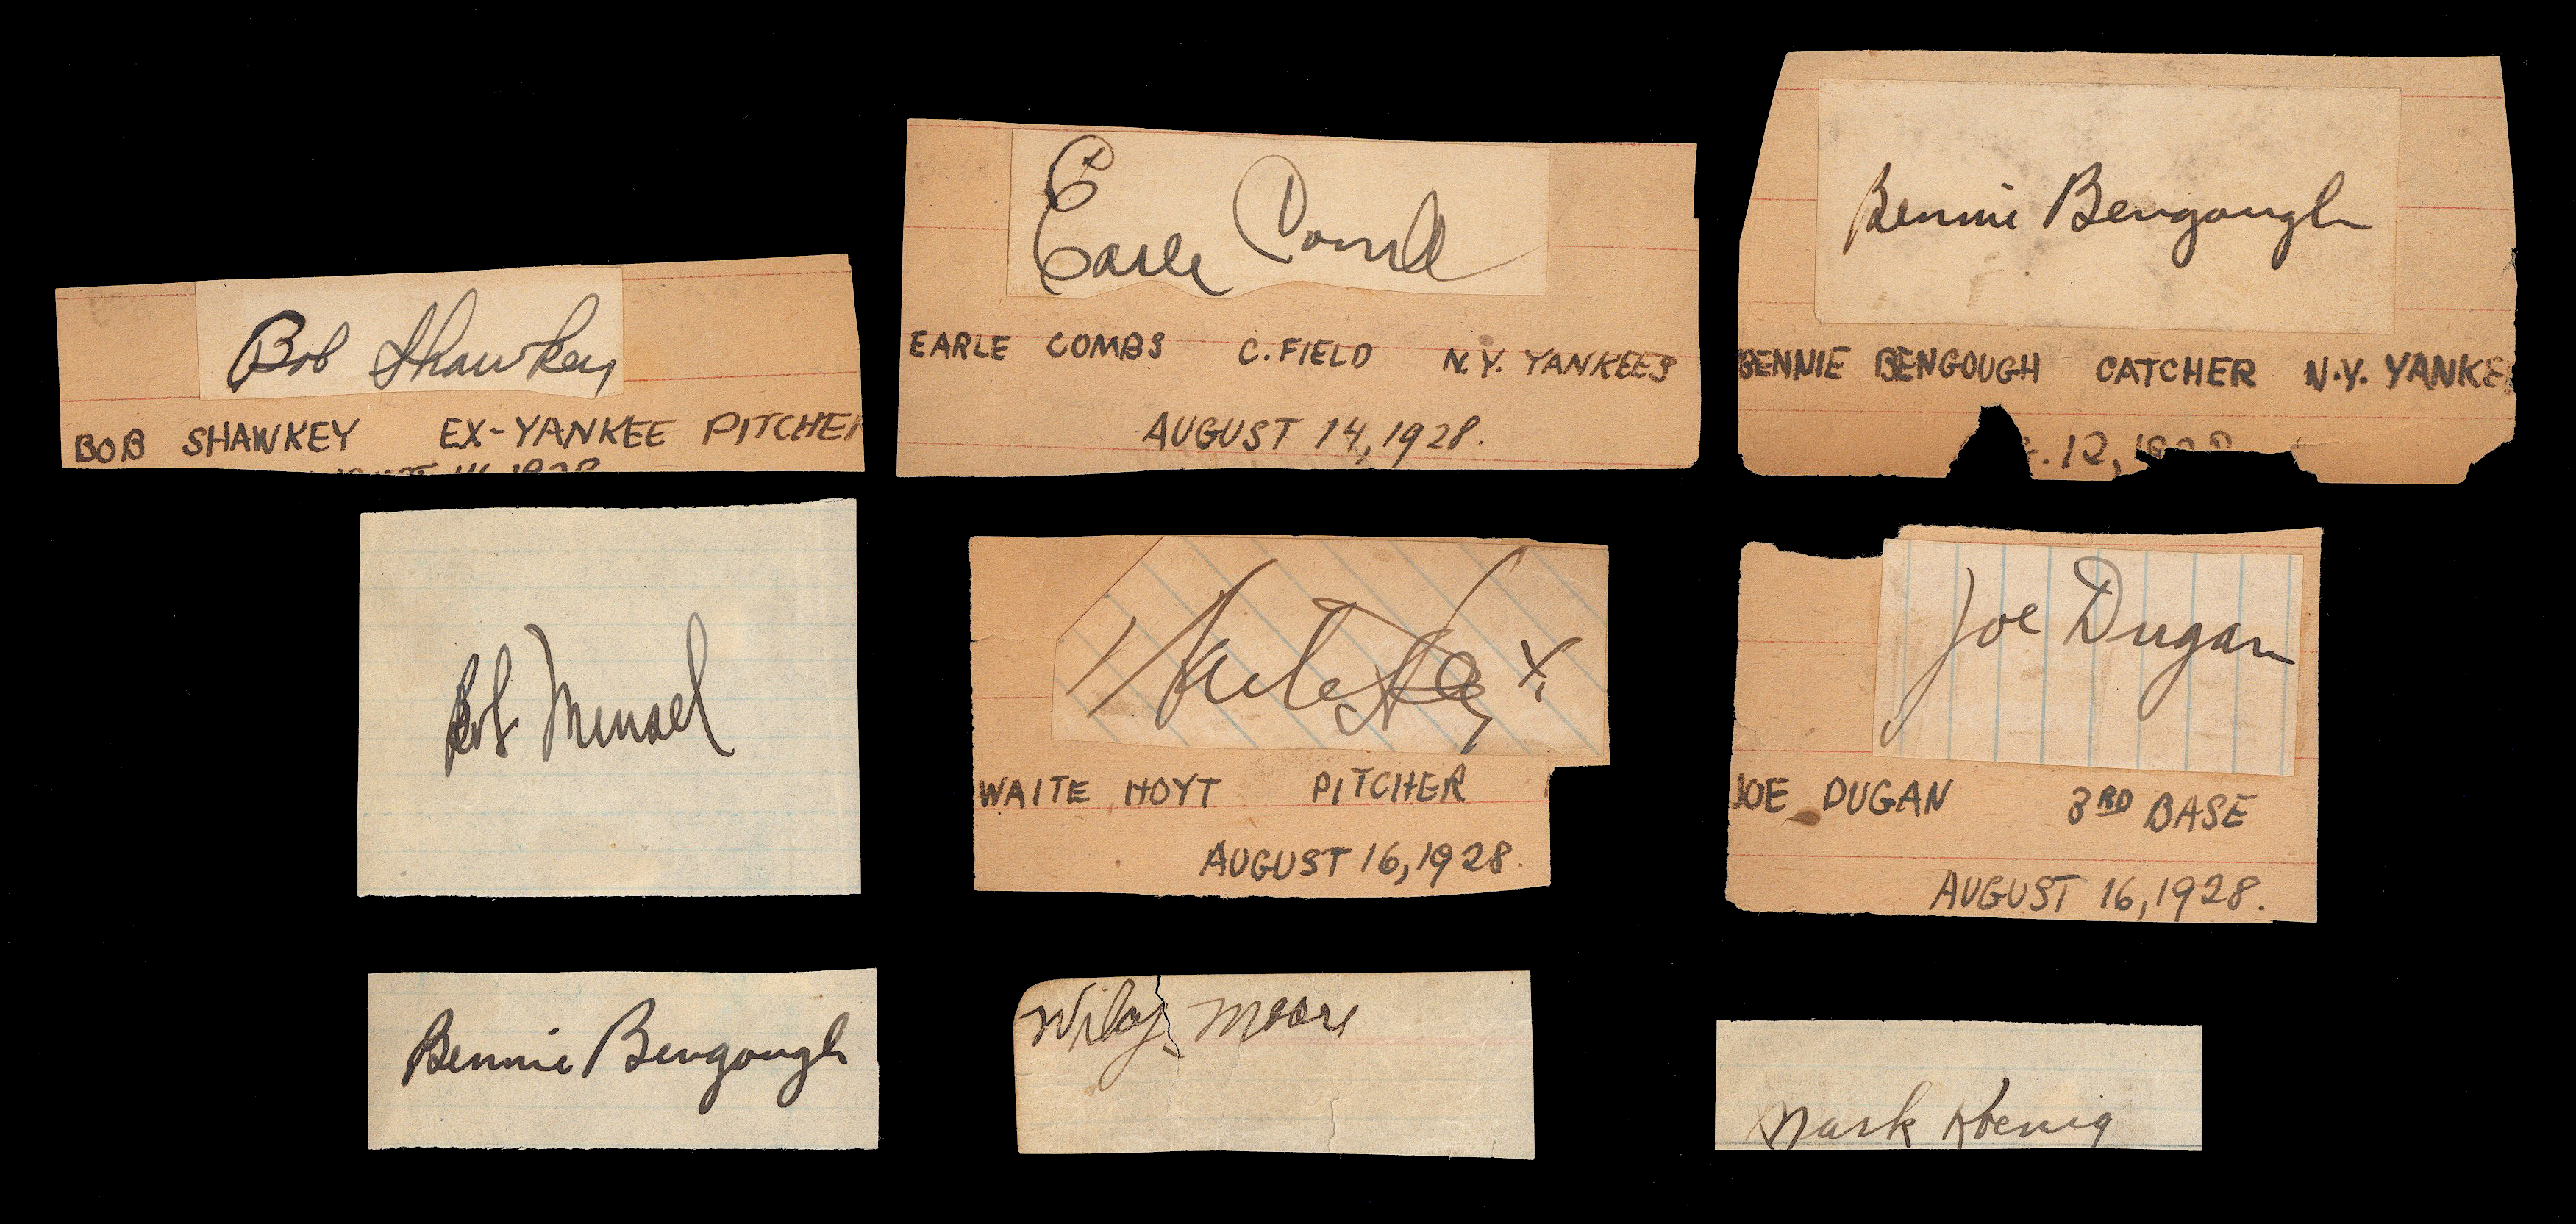 Bob Shawkey
BOB SHAWKEY EX-YANKEE PITCHER
Earle Combs
EARLE COMBS C. FIELD N.Y. YANKEES
AUGUST 14, 1928.
Bennie Bengough
BENNIE BENGOUGH CATCHER N.Y. YANKE
12,
Bob Meusel
Waite Hoyt
WAITE HOYT PITCHER
AUGUST 16, 1928.
Joe Dugan
JOE DUGAN 3RD BASE
AUGUST 16, 1928.
Bennie Bengough
Wilcy Moore
Mark Koenig